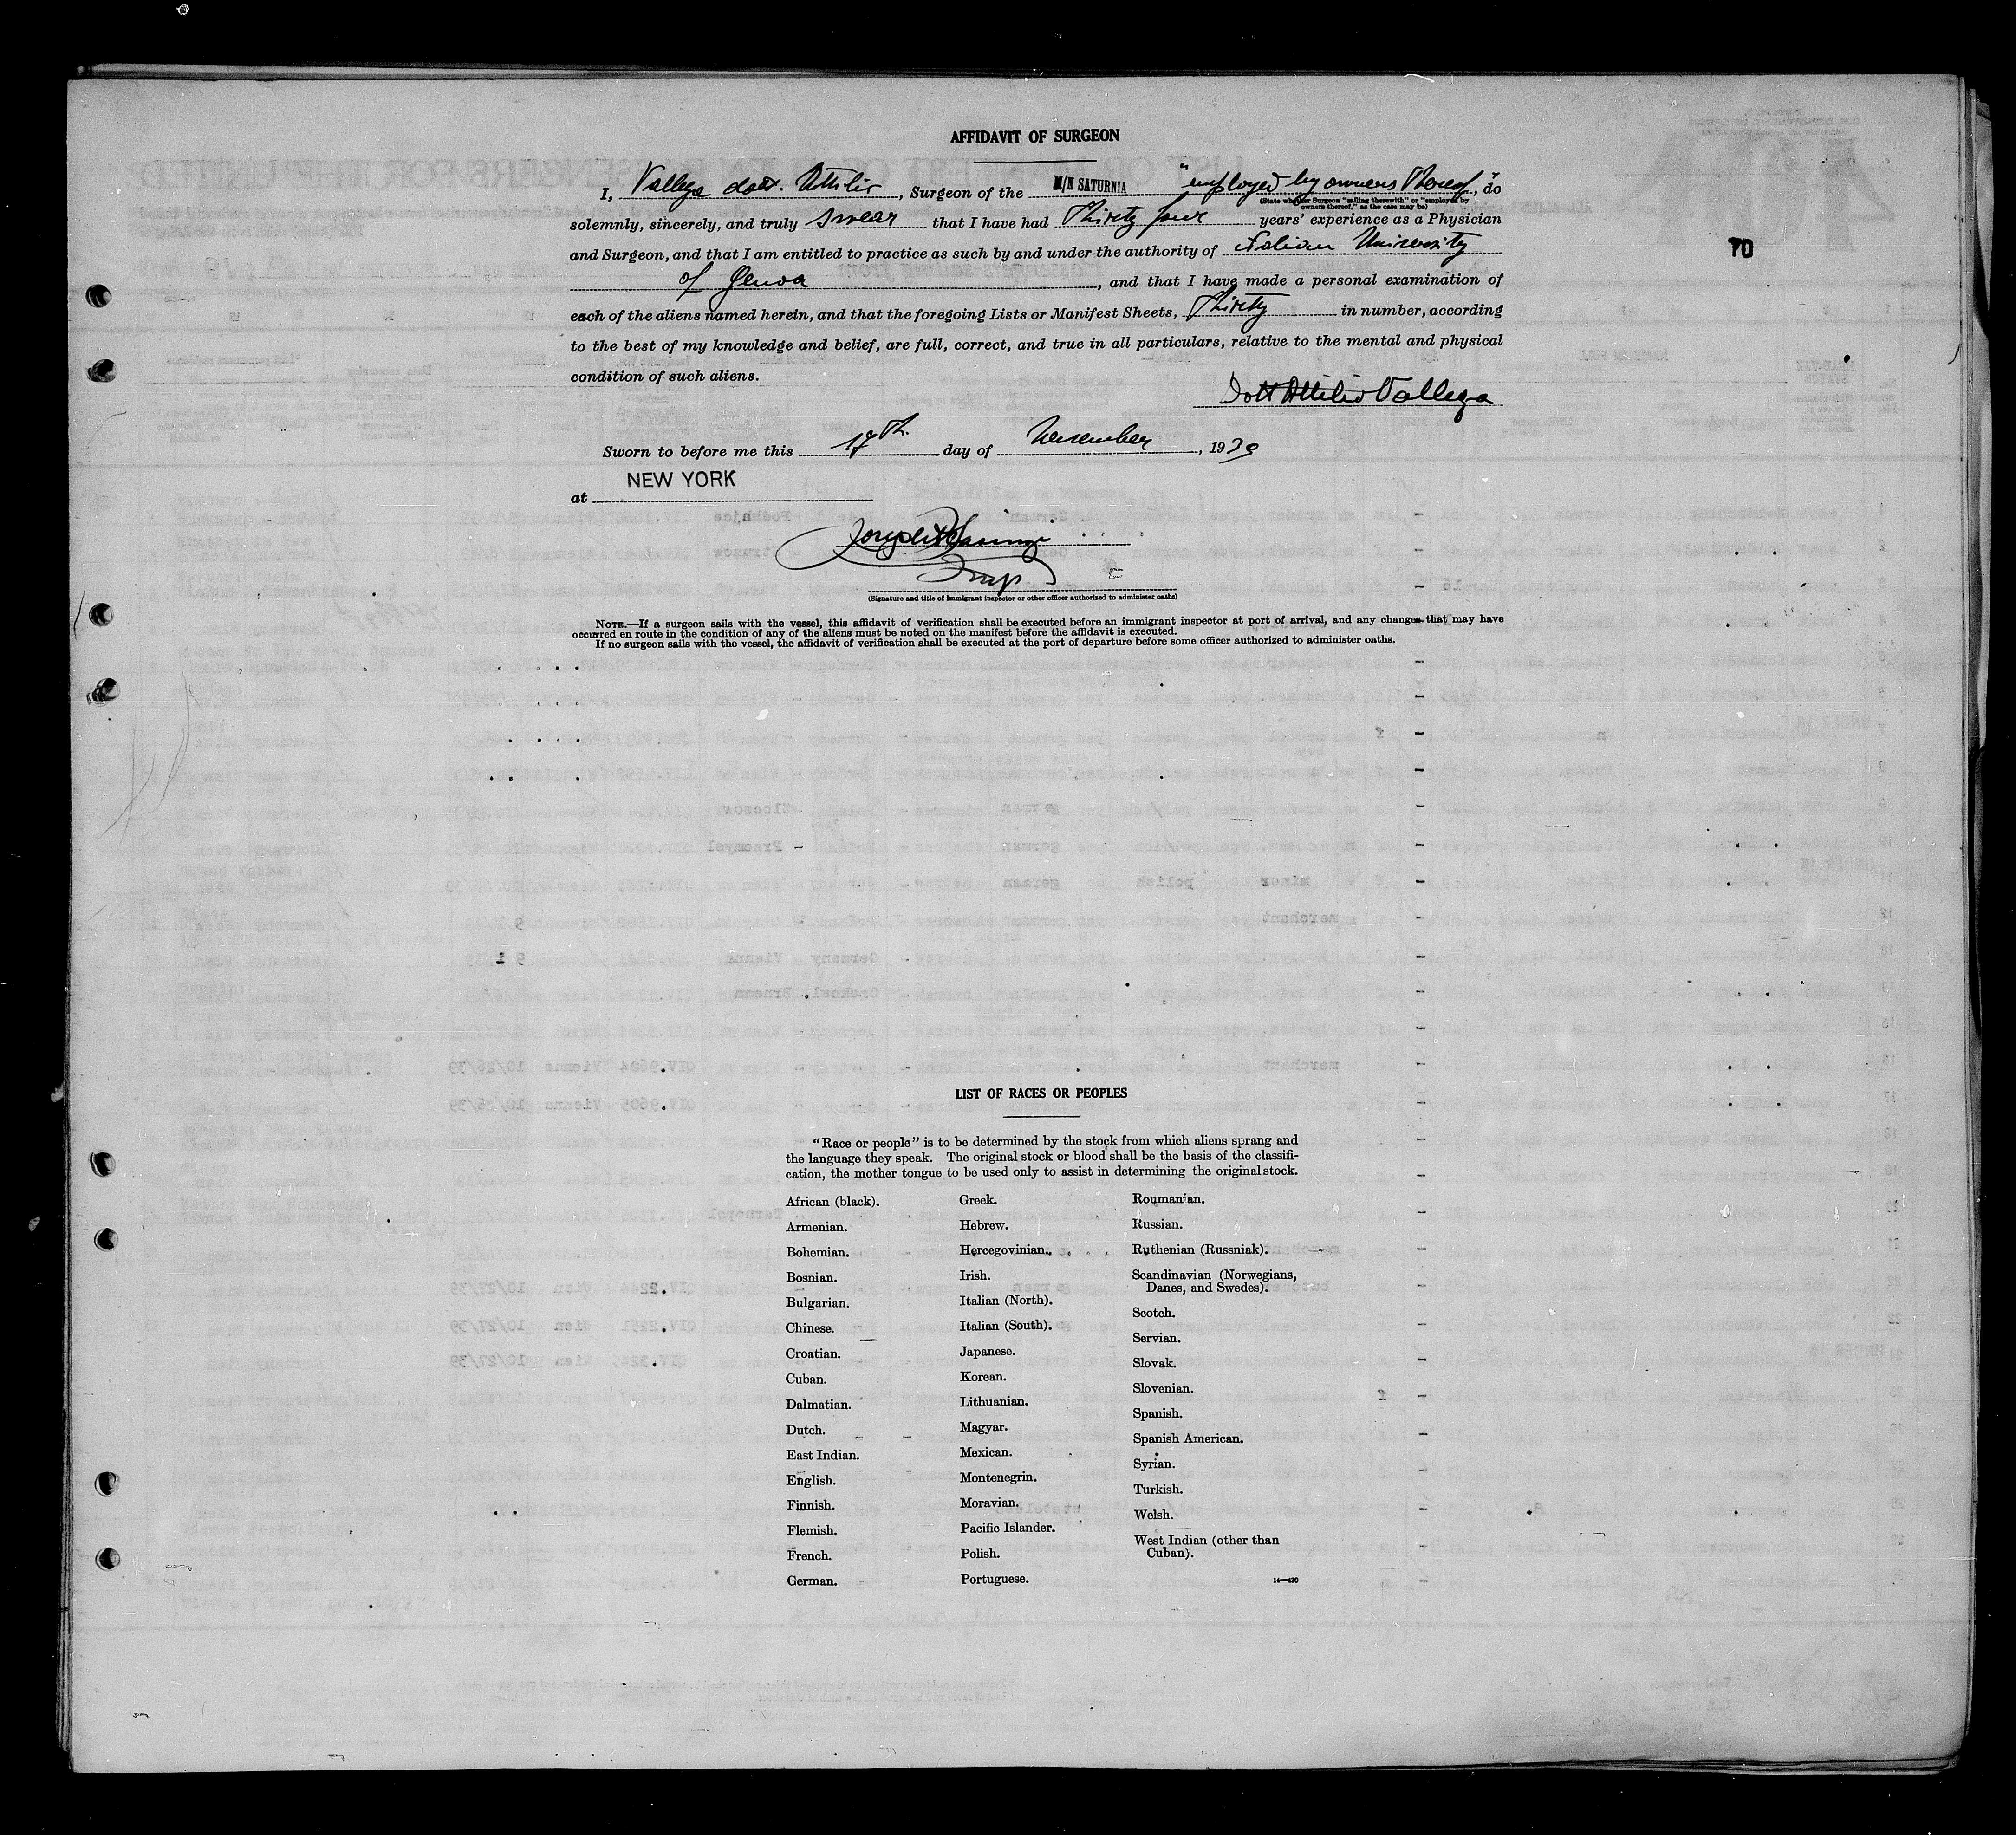 AFFIDAVIT OF SURGEON
I, Vallega dott. Attilio, Surgeon of the M/N SATURNIA "employed by owners thereof," do
(State whether Surgeon "sailing therewith" or "employed by
owners thereof," as the case may be)
solemnly, sincerely, and truly swear that I have had Thirty four years' experience as a Physician
and Surgeon, and that I am entitled to practice as such by and under the authority of Italian University
70
of Genoa, and that I have made a personal examination of
each of the aliens named herein, and that the foregoing Lists or Manifest Sheets, Thirty in number, according
to the best of my knowledge and belief, are full, correct, and true in all particulars, relative to the mental and physical
condition of such aliens.
Dott Attilio Vallega
Sworn to before me this 17th. day of November, 1939
at NEW YORK
(Signature and title of immigrant inspector or other officer authorized to administer oaths)
NOTE.—If a surgeon sails with the vessel, this affidavit of verification shall be executed before an immigrant inspector at port of arrival, and any changes that may have
occurred en route in the condition of any of the aliens must be noted on the manifest before the affidavit is executed.
If no surgeon sails with the vessel, the affidavit of verification shall be executed at the port of departure before some officer authorized to administer oaths.
LIST OF RACES OR PEOPLES
"Race or people" is to be determined by the stock from which aliens sprang and
the language they speak. The original stock or blood shall be the basis of the classifi-
cation, the mother tongue to be used only to assist in determining the original stock.
African (black).
Armenian.
Bohemian.
Bosnian.
Bulgarian.
Chinese.
Croatian.
Cuban.
Dalmatian.
Dutch.
East Indian.
English.
Finnish.
Flemish.
French.
German.
Greek.
Hebrew.
Hercegovinian.
Irish.
Italian (North).
Italian (South).
Japanese.
Korean.
Lithuanian.
Magyar.
Mexican.
Montenegrin.
Moravian.
Pacific Islander.
Polish.
Portuguese.
Roumanian.
Russian.
Ruthenian (Russniak).
Scandinavian (Norwegians,
Danes, and Swedes).
Scotch.
Servian.
Slovak.
Slovenian.
Spanish.
Spanish American.
Syrian.
Turkish.
Welsh.
West Indian (other than
Cuban).
14—430